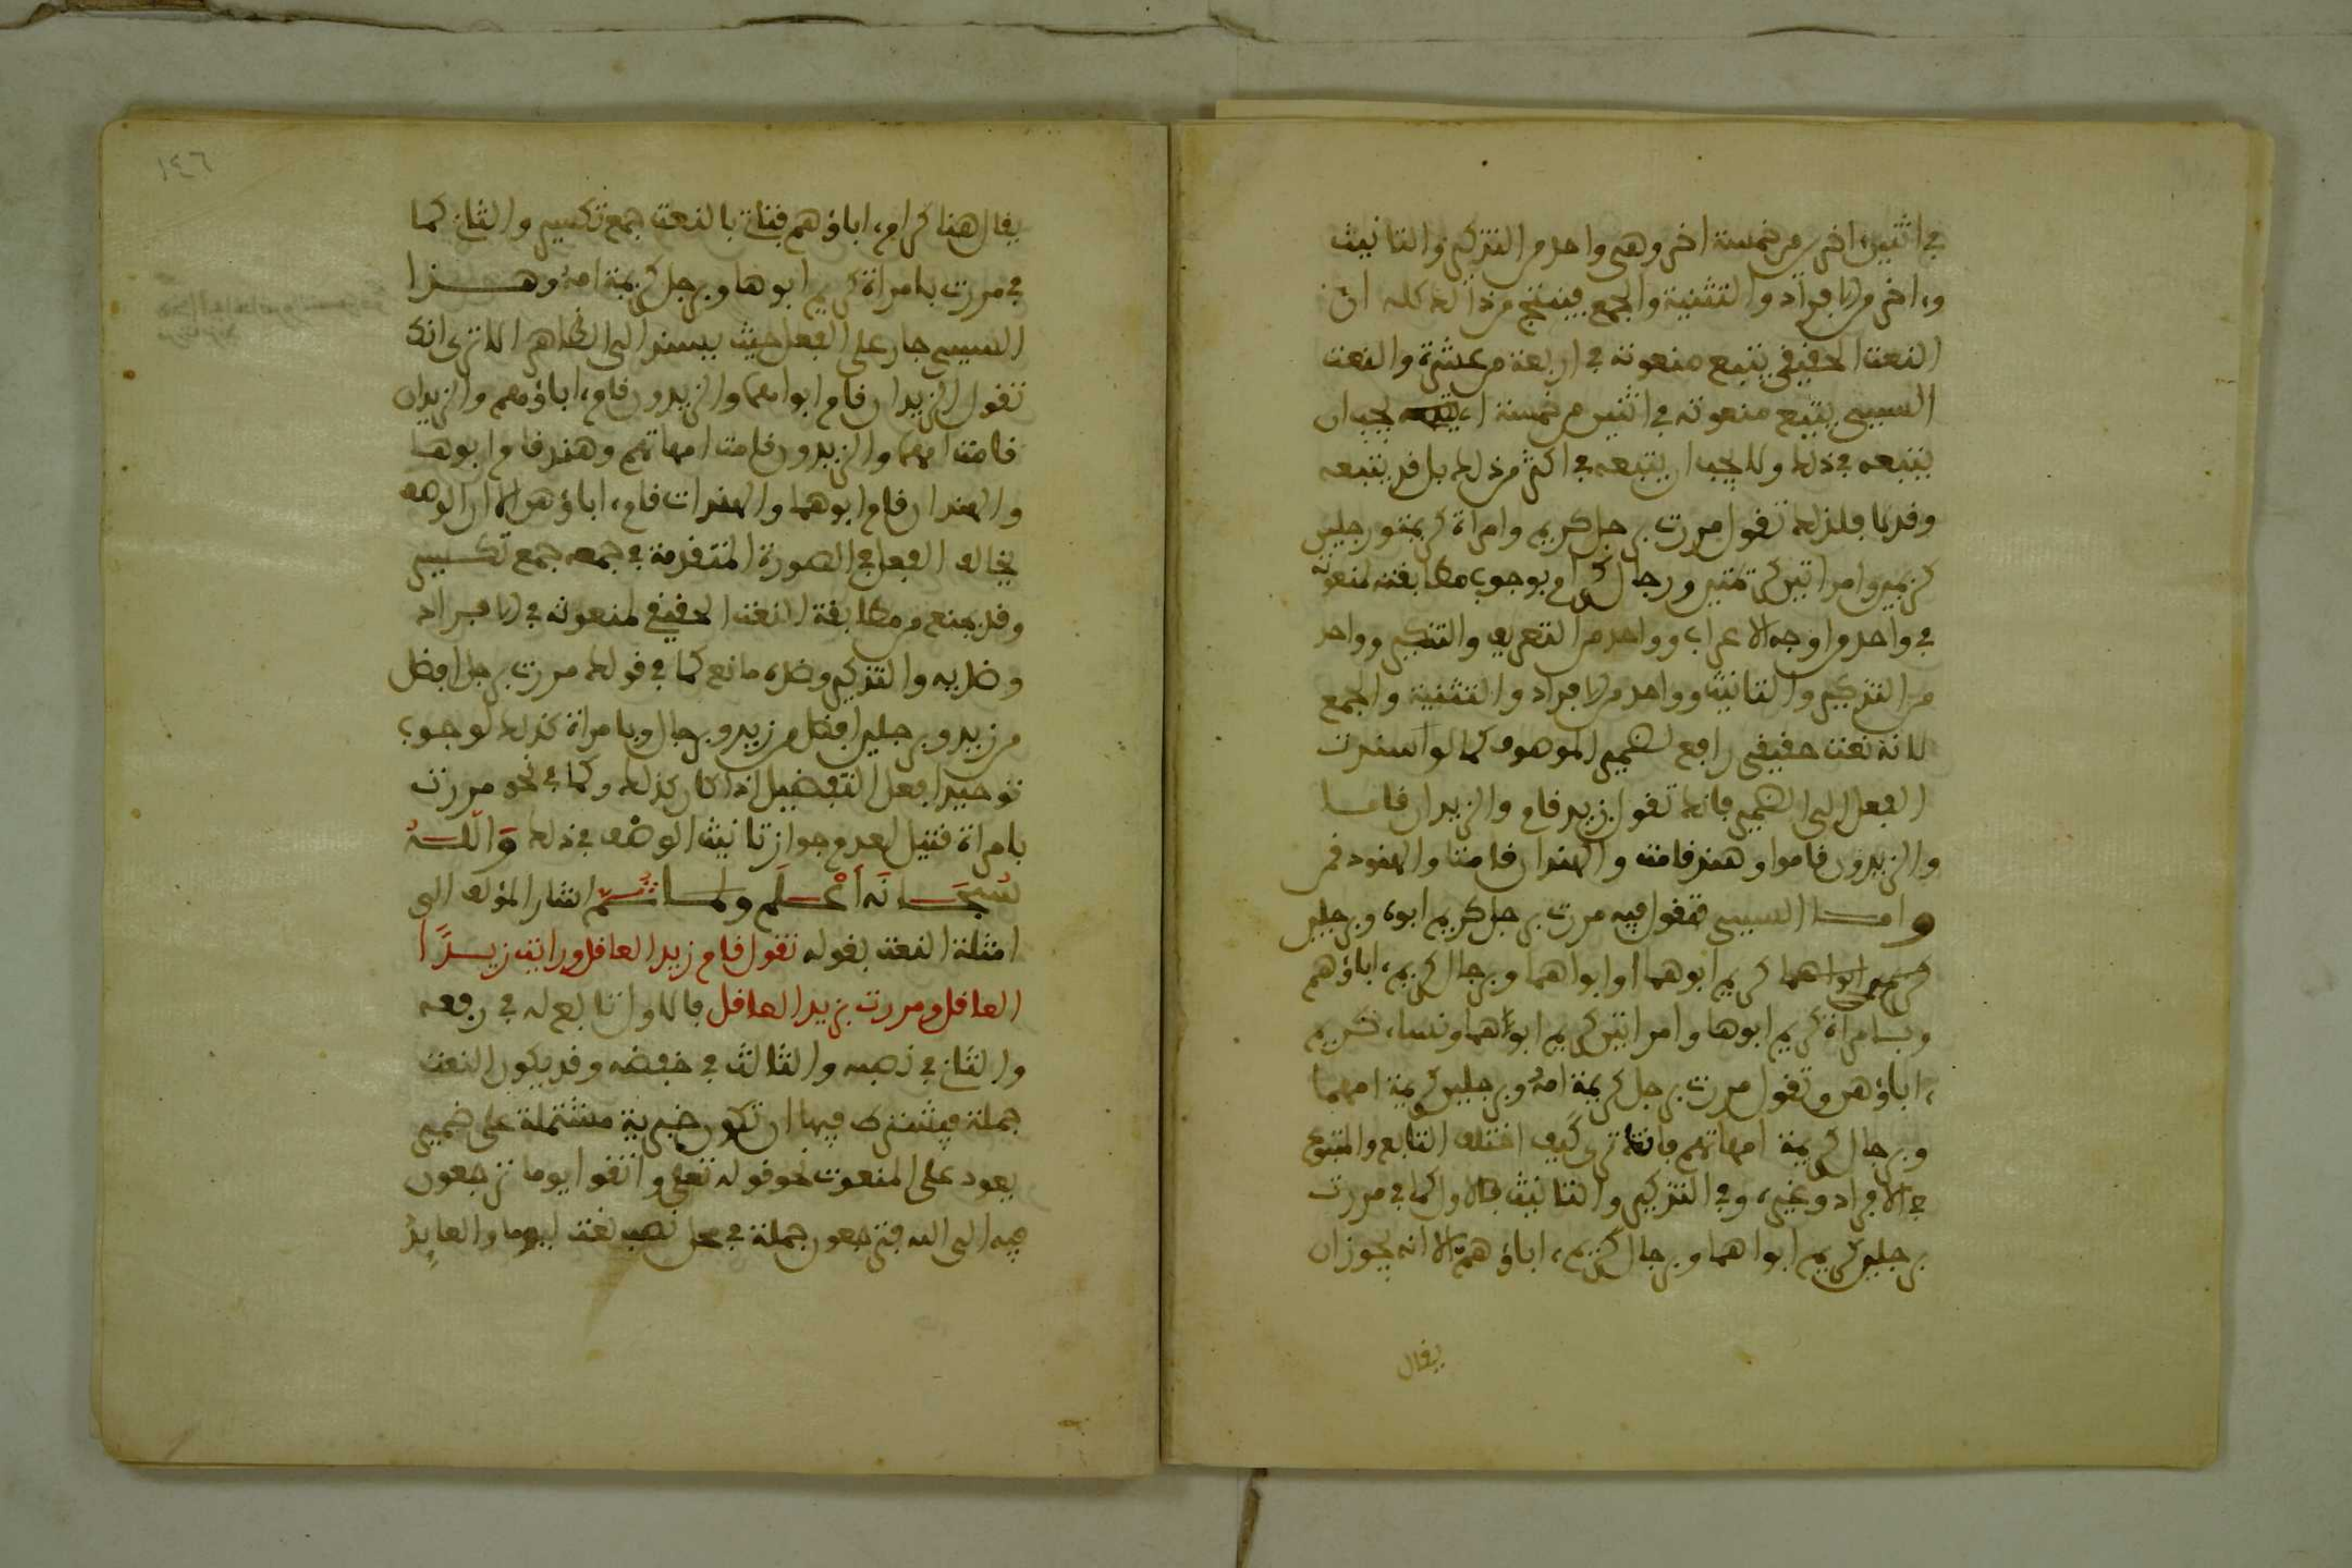 في اثنين اخرين من خمسة اخر وهي واحد من التذكير والتانيث
وءاخر من الافراد والتثنية والجمع فينتج من ذالك كله ان
النعت الحقيقي يتبع منعوته في اربعة من عشرة والنعت
السببي يتبع منعوته في اثنين من خمسة يجب ان
يتبعه في ذلك ولا يجب ان يتبعه في اكثر من ذلك بل قد يتبعه
وقد لا فلذلك تقول مررت برجل كريم وامراة كريمة ورجلين
كريمين وامراتين كريمتين ورجال كرام بوجوب مطابقته لمنعوته
في واحد من اوجه الاعراب وواحد من التعريف والتنكير وواحد
من التذكير والتانيث وواحد من الافراد والتثنية والجمع
لانه نعت حقيقي رافع لضمير الموصوف كما لو اسندت
الفعل الى الضمير فانك تقول زيد قام والزيدان قاما
والزيدون قاموا وهند قامت والهندان قامتا والهنود قمن
واما السببي فتقول فيه مررت برجل كريم ابوه وبرجلين
كريم ابوهما او ابواهما وبرجال كريم ءاباؤهم
وبامراة كريم ابوها وامراتين كريم ابواهما ونساء كريم
ءاباؤهن وتقول مررت برجل كريمة امه وبرجلين كريمة امهما
وبرجال كريمة امهاتهم فانت ترى كيف اختلف التابع والمتبوع
في الافراد وغيره وفي التذكير والتانيث فالاول كما في مررت
برجلين كريم ابواهما وبرجال كريم ءاباؤهم الا انه يجوز ان
يقال
١٤٦
يقال هنا كرام ءاباؤهم فتاتي بالنعت جمع تكسير والثاني كما
في مررت بامراة كريم ابوها وبرجل كريمة امه وهذا
السببي جار على الفعل حيث يسند الى الظاهر الا ترى انك
تقول الزيدان قام ابواهما والزيدون قام ءاباؤهم والزيدان
قامت امهما والزيدون قامت امهاتهم وهند قام ابوها
والهندان قام ابوهما والهندات قام ءاباؤهن الا ان الوصف
يخالف الفعل في الصورة المتقدمة في جمعه جمع تكسير
وقد يمنع من مطابقة النعت الحقيقي لمنعوته في الافراد
وضديه والتذكير وضده مانع كما في قولك مررت برجل افضل
من زيد وبرجلين افضل من زيد وبرجال وبامراة كذلك لوجوب
توحيد افعل التفضيل اذا كان كذلك وكما في نحو مررت
بامراة قتيل لعدم جواز تانيث الوصف في ذلك وَاللَّهُ
سُبْحَانَهُ أَعْلَمُ ولما اشار المؤلف الى
امثلة النعت بقوله تقول قام زيد العاقل ورايت زيدًا
العاقل ومررت بزيد العاقل فالاول تابع له في رفعه
والثاني في نصبه والثالث في خفضه وقد يكون النعت
جملة فيشترط فيها ان تكون خبرية مشتملة على ضمير
يعود على المنعوت نحو قوله تعلى واتقوا يوما ترجعون
فيه الى الله فترجعون جملة في محل نصب نعت ليوما والعايد